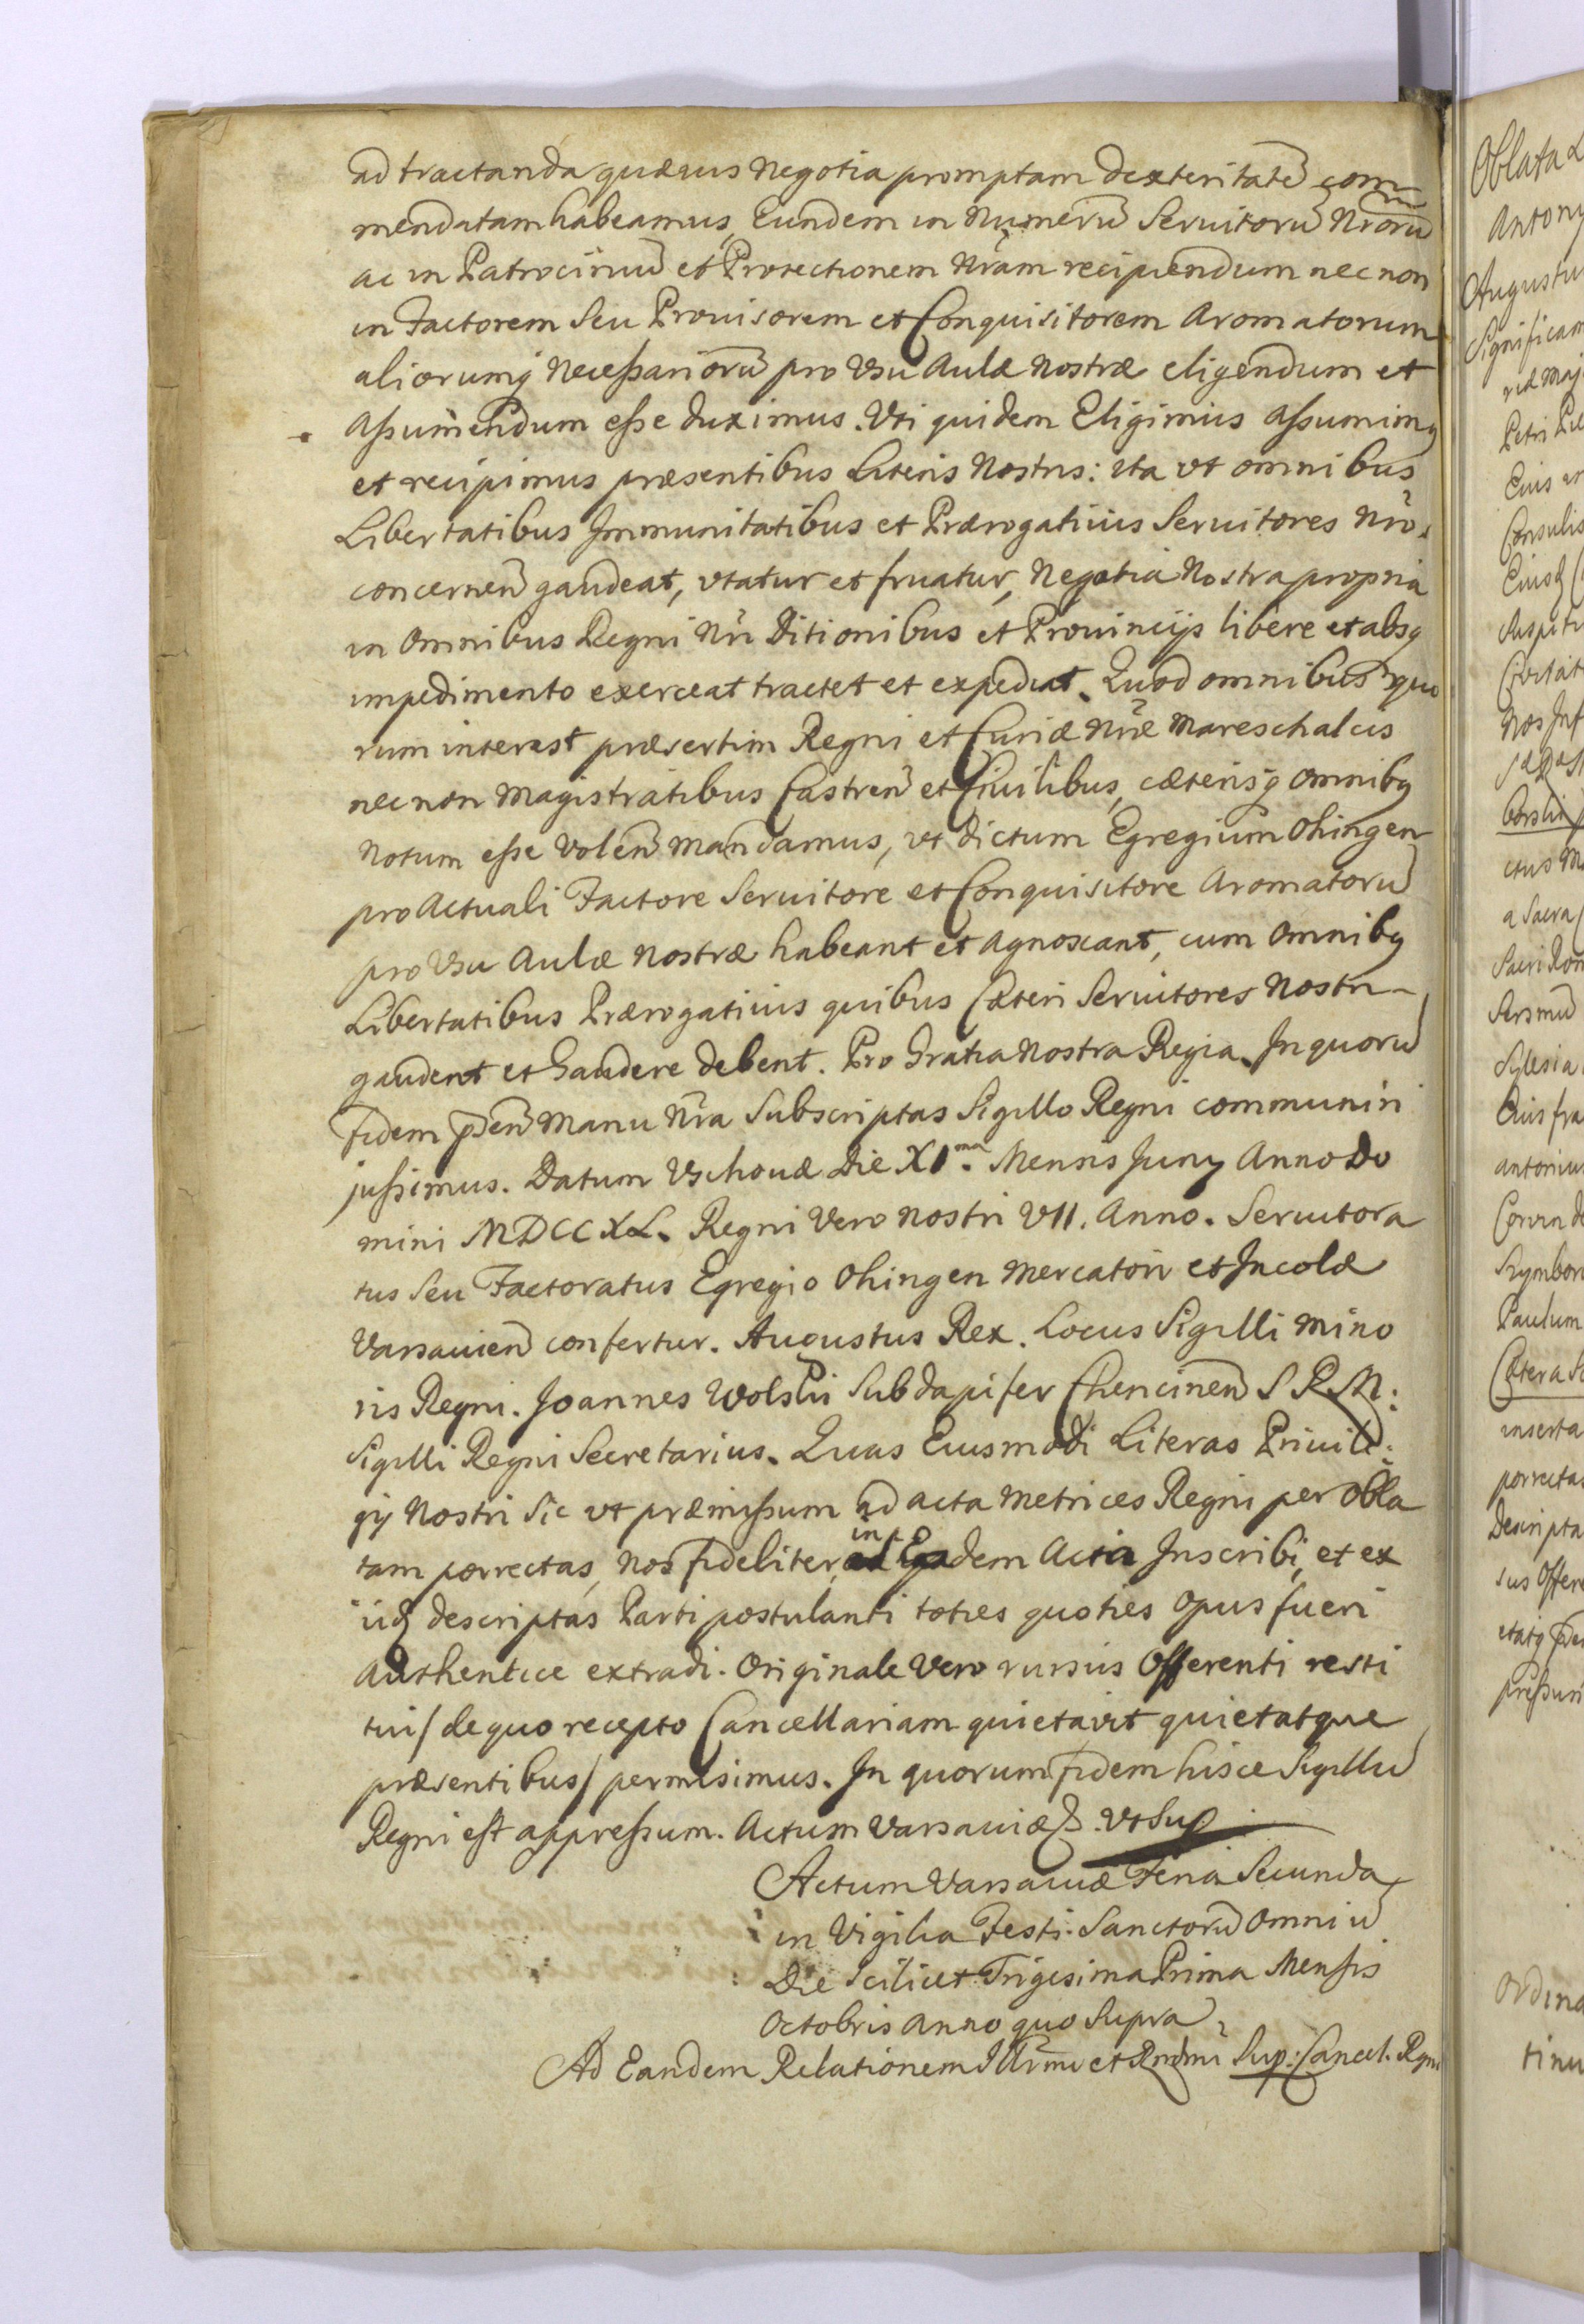 ad tractanda quævis Negotia promptam dexteritatē com
mendatam habeamus, Eundem in Numerū Servitorū Nrorū
ac in Patrociniū et Protectionem Nram recipiendum nec non
in Factorem Seu Provisorem et Conquisitorem Aromatorum
aliorumq Necessariorū pro Vsu Aulæ Nostræ eligendum et
Assumendum esse duximus. Vti quidem Eligimus Assumimq
et recipimus præsentibus Literis Nostris: ita vt omnibus
Libertatibus Immunitatibus et Prærogativis Servitores Nro.
concernen gaudeat, vtatur et fruatur, Negotia Nostra propria
in Omnibus Regni Nri Ditionibus et Provincijs libere et absq
impedimento exerceat tractet et expediat. Quod omnibus quo
rum interest præsertim Regni et Curiæ Nræ Mareschalcis
nec non Magistratibus Castren et Civilibus, cæterisq omnibq
Notum esse Volen Mandamus, vt dictum Egregium Ohingen
pro Actuali Factore Servitore et Conquisitore Aromatorū
pro Vsu Aulæ Nostræ habeant et Agnoscant, cum Omnibq
Libertatibus Prærogativis quibus Cæteri Servitores Nostri
gaudent et Gaudere debent. Pro Gratia Nostra Regia. In quorū
fidem p̄en Manu Nra Subscriptas Sigillo Regni communiri
jussimus. Datum Vschovæ Die XI ma. Mensis Juny Anno Do
mini MDCCXL. Regni Vero Nostri VII. Anno. Servitora
tus Seu Factoratus Egregio Ohingen Mercatori et Incolæ
Varsavien confertur. Augustus Rex. Locus Sigilli Mino
ris Regni. Joannes Wolski Subdapifer Chencinen S R M:
Sigilli Regni Secretarius. Quas Eiusmodi Literas Privile:
gij Nostri Sic vt præmissum ad Acta Metrices Regni per Obla
tam porrectas, Nos fideliter in Eadem Acta Inscribi, et ex
ijsd descriptas Parti postulanti toties quoties Opus fueri
Authentice extradi. Originale Vero rursus Offerenti resti
tui / de quo recepto Cancellariam quietavit quietatque
præsentibus / permisimus. In quorum fidem hisce Sigillū
Regni est appressum. Actum Varsaviæ D. vt Sup
Actum Varsaviæ Feria Secunda
in Vigilia Festi Sanctorū Omniū
Die Scilicet Trigesima Prima Mensis
Octobris Anno quo Supra
Ad Eandem Relationem Illrmi et Rndmi Sup: Cancel. Rgni
Oblata
Antony
Augustu
Significam
riæ Maj
Petri
Eius
Consulis
Eiusq
Civitat
Nos Inf
ctus M
a Sacra
Sacri Rom
Silesia
Eius fra
antonius
Corvin de
Szymbor
Paulum
Cætera
inserta
porrectas
Descripta
sus Offere
pressum
Ordina
tinu